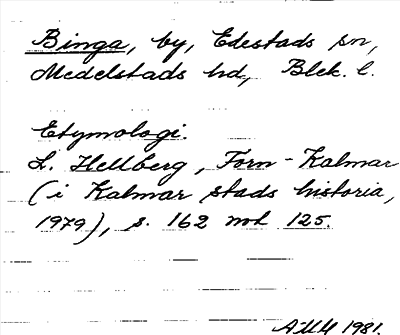 Binga, by, Edestads sn,
Medelstads hd, Blek. l.
Etymologi.
L. Hellberg, Forn-Kalmar
(i Kalmar stads historia,
1979), s. 162 not 125.
1981.